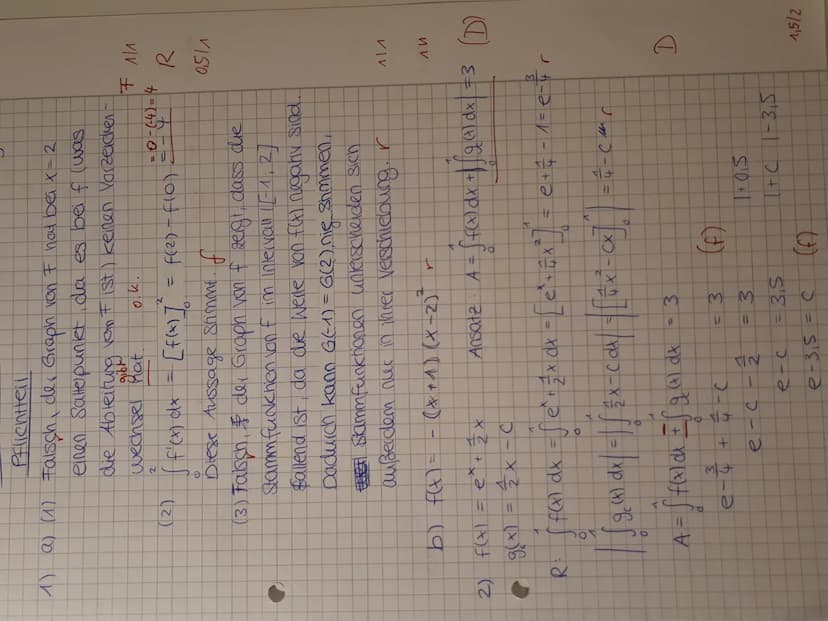 Pflichtteil
1) a) (1) Falsch, der Graph von F hat bei x = 2
einen Sattelpunkt, da es bei f (was
die Ableitung von F ist) keinen Vorzeichen- F
wechsel gibt hat. o.k. 1/1
= 0 - (-4) = 4
(2) ∫₀² f'(x) dx = [f(x)]₀² = f(2) - f(0) = -4 R
Diese Aussage stimmt. f 0,5/1
(3) Falsch, der Graph von f zeigt, dass die
Stammfunktion von f im Intervall [-1, 2]
fallend ist, da die Werte von f(x) negativ sind.
Dadurch kann G(-1) = G(2) nie stimmen,
Stammfunktionen unterscheiden sich
außerdem nur in ihrer Verschiebung. r 1/1
b) f(x) = - (x+1) (x-2)² r 1/1
2) f(x) = eˣ + ½x Ansatz: A = ∫₀¹ f(x) dx + |∫₀¹ g(x) dx| = 3 (D)
g_c(x) = ½x - c
R: ∫₀¹ f(x) dx = ∫₀¹ eˣ + ½x dx = [eˣ + ¼x²]₀¹ = e + ¼ - 1 = e - ¾ r
|∫₀¹ g_c(x) dx| = |∫₀¹ ½x - c dx| = |[¼x² - cx]₀¹| = ¼ - c r
A = ∫₀¹ f(x) dx + ∫₀¹ g_c(x) dx = 3 D
e - ¾ + ¼ - c = 3 (f)
e - c - ½ = 3 |+0,5
e - c = 3,5 |+c |-3,5
e - 3,5 = c (f) 1,5/2